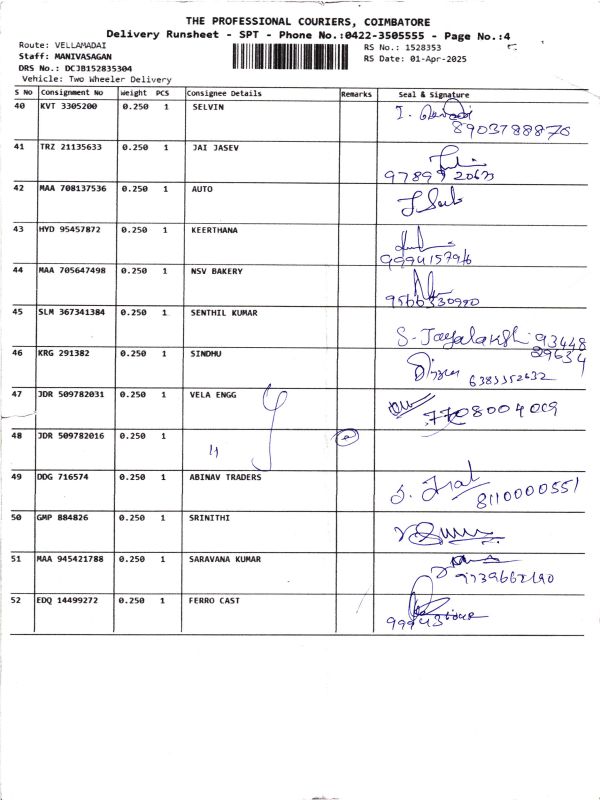 THE PROFESSIONAL COURIERS, COIMBATORE
Delivery Runsheet - SPT - Phone No.:0422-3505555 - Page No.:4
Route: VELLAMADAI
Staff: MANIVASAGAN
DRS No.: DCJB152835304
Vehicle: Two Wheeler Delivery
RS No.: 1528353
RS Date: 01-Apr-2025
S No Consignment No Weight PCS Consignee Details Remarks Seal & Signature
40 KVT 3305200 0.250 1 SELVIN
8903788870
41 TRZ 21135633 0.250 1 JAI JASEV
42 MAA 708137536 0.250 1 AUTO
43 HYD 95457872 0.250 1 KEERTHANA
9994157916
44 MAA 705647498 0.250 1 NSV BAKERY
9566330990
45 SLM 367341384 0.250 1 SENTHIL KUMAR
93448
29634
46 KRG 291382 0.250 1 SINDHU
6383352632
47 JDR 509782031 0.250 1 VELA ENGG
7708004009
48 JDR 509782016 0.250 1 "
49 DDG 716574 0.250 1 ABINAV TRADERS
8110000551
50 GMP 884826 0.250 1 SRINITHI
51 MAA 945421788 0.250 1 SARAVANA KUMAR
52 EDQ 14499272 0.250 1 FERRO CAST